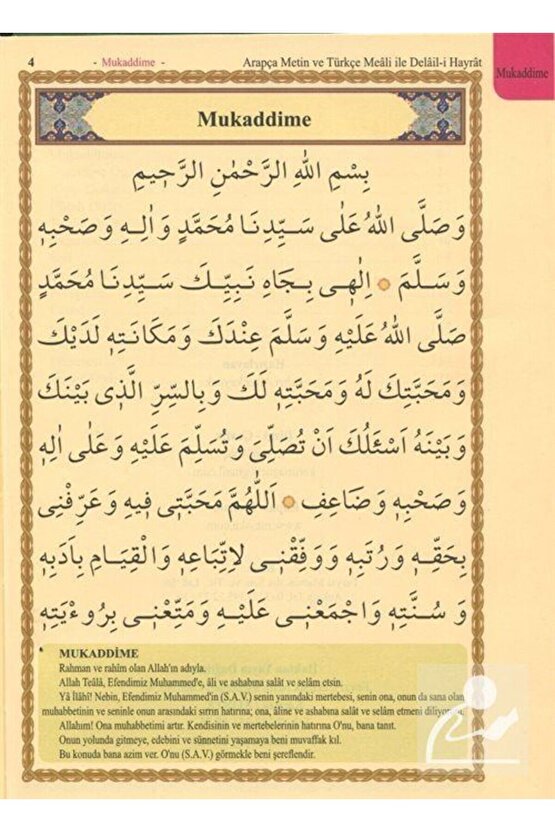 4
- Mukaddime -
Arapça Metin ve Türkçe Meâli ile Delâil-i Hayrât
Mukaddime
Mukaddime
بِسْمِ اللهِ الرَّحْمٰنِ الرَّحٖيمِ
وَصَلَّى اللهُ عَلٰى سَيِّدِنَا مُحَمَّدٍ وَاٰلِهٖ وَصَحْبِهٖ
وَسَلَّمَ ۞ اِلٰهٖى بِجَاهِ نَبِيِّكَ سَيِّدِنَا مُحَمَّدٍ
صَلَّى اللهُ عَلَيْهِ وَسَلَّمَ عِنْدَكَ وَمَكَانَتِهٖ لَدَيْكَ
وَمَحَبَّتِكَ لَهُ وَمَحَبَّتِهٖ لَكَ وَبِالسِّرِّ الَّذٖى بَيْنَكَ
وَبَيْنَهُ اَسْئَلُكَ اَنْ تُصَلِّىَ وَتُسَلِّمَ عَلَيْهِ وَعَلٰى اٰلِهٖ
وَصَحْبِهٖ وَضَاعِفِ ۞ اَللّٰهُمَّ مَحَبَّتٖى فٖيهِ وَعَرِّفْنٖى
بِحَقِّهٖ وَرُتَبِهٖ وَوَفِّقْنٖى لِاِتِّبَاعِهٖ وَالْقِيَامِ بِاٰدَبِهٖ
وَسُنَّتِهٖ وَاجْمَعْنٖى عَلَيْهِ وَمَتِّعْنٖى بِرُوءْيَتِهٖ
MUKADDİME
Rahman ve rahîm olan Allah'ın adıyla.
Allah Teâlâ, Efendimiz Muhammed'e, âli ve ashabına salât ve selâm etsin.
Yâ İlâhî! Nebin, Efendimiz Muhammed'in (S.A.V.) senin yanındaki mertebesi, senin ona, onun da sana olan
muhabbetinin ve seninle onun arasındaki sırrın hatırına; ona, âline ve ashabına salât ve selâm etmeni diliyorum.
Allahım! Ona muhabbetimi artır. Kendisinin ve mertebelerinin hatırına O'nu, bana tanıt.
Onun yolunda gitmeye, edebini ve sünnetini yaşamaya beni muvaffak kıl.
Bu konuda bana azim ver. O'nu (S.A.V.) görmekle beni şereflendir.